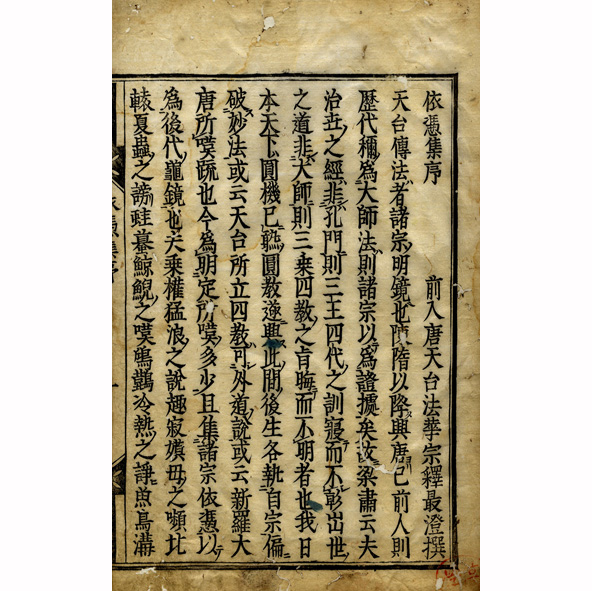 依憑集序　前入唐天台法華宗釋最澄撰
天台傳法者諸宗明鏡也陳隋以降興唐已前人則
歷代稱爲大師法則諸宗以爲證據矣故梁肅云夫
治世之經非孔門則三王四代之訓寢而不彰出世
之道非大師則三乘四教之旨晦而不明者也我日
本天下圓機已熟圓教遂興此間後生各執自宗偏
破妙法或云天台所立四教可外道說或云新羅大
唐所嘆疏也今爲明定所嘆多少且集諸宗依憑以
爲後代龍鏡也夫乘權猛浪之說趣寂之嚬比
轅夏蟲之謗蟇鯨鯢之嘆鷃冷熱之諍魚鳥溝
依憑集序